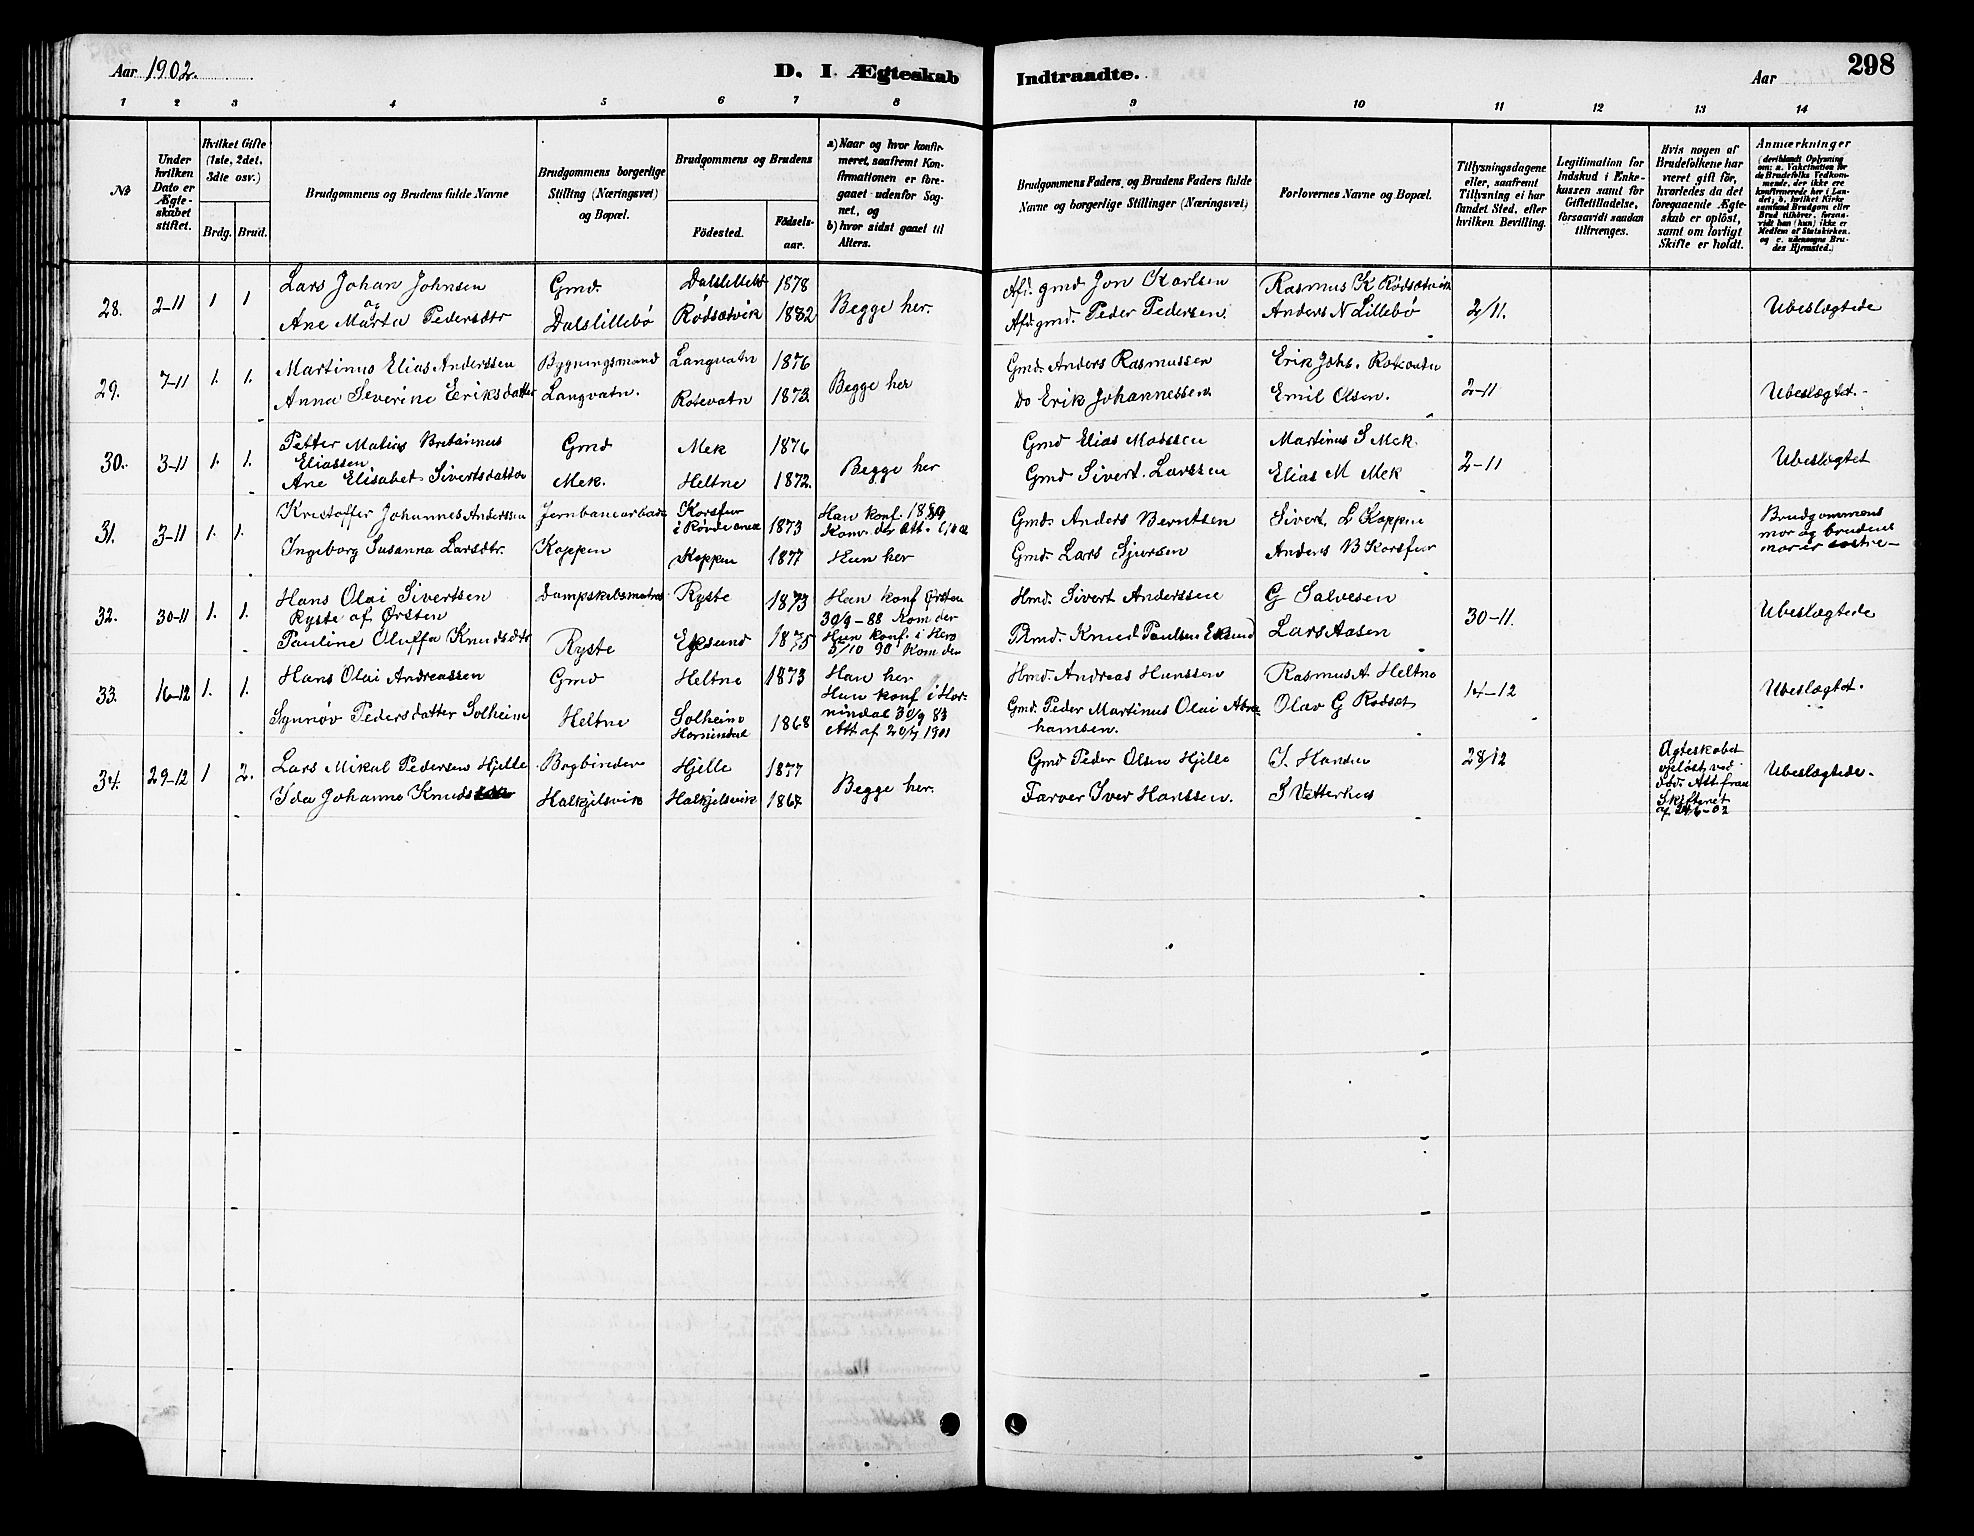 Aar 1902.
D. I Ægteskab
Indtraadte.
Aar
298
1 2 3 4 5 6 7 8 9 10 11 12 13 14
No
Under hvilken Dato er Ægteskabet stiftet.
Hvilket Gifte (1ste, 2det, 3die osv.)
Brdg. Brud.
Brudgommens og Brudens fulde Navne
Brudgommens borgerlige Stilling (Næringsvei) og Bopæl.
Brudgommens og Brudens
Födested. Födselsaar.
a) Naar og hvor konfirmeret, saafremt Konfirmationen er foregaaet udenfor Sognet, og
b) hvor sidst gaaet til Alters.
Brudgommens Faders, og Brudens Faders fulde Navne og borgerlige Stillinger (Næringsvei)
Forlovernes Navne og Bopæl.
Tillysningsdagene eller, saafremt Tillysning ei har fundet Sted, efter hvilken Bevilling.
Legitimation for Indskud i Enkekassen samt for Giftetilladelse, forsaavidt saadan tiltrænges.
Hvis nogen af Brudefolkene har været gift för, hvorledes da det foregaaende Ægteskab er oplöst, samt om lovligt Skifte er holdt.
Anmærkninger
28. 2-11 1 1 Lars Johan Johnsen Gmd. Dalslillebö 1878 Begge her. Afd. gmd Jon Karlsen Rasmus K Rødsætvik 2/11. Ubeslægtede
og
Ane Marta Pedersdtr Dalslillebö Rødsætvik 1882 Afd. gmd. Peder Pedersen. Anders N Lillebö
29. 7-11 1. 1. Martinus Elias Anderssen Bygningsmand Langvatn 1876 Begge her Gmd. Anders Rasmussen Erik Johs. Rotevatn 2-11 Ubeslægtet.
Anna Severine Eriksdatter Langvatn. Rotevatn 1873. do Erik Johannessen Emil Olsen.
30. 3-11 1. 1. Petter Matias Britanius Gmd Mek 1876 Begge her Gmd Elias Madssen Martinus S Mek. 2-11 Ubeslægtet
Eliassen.
Ane Elisabet Sivertsdatter Mek. Heltne 1872. Gmd Sivert. Larssen Elias M Mek
31. 3-11 1. 1. Kristoffer Johannes Anderssen Jernbanearbeid Korsfur 1873 Han konf. 1889 Gmd. Anders Berntsen Sivert. L Koppen Brudgommens mor og brudens mor er søstre
Ingeborg Susanna Larsdtr. Koppen Koppen 1877 Hun her Gmd. Lars Sjursen Anders B Korsfur
32. 30-11 1. 1. Hans Olai Sivertsen Dampskibsmatros Ryste 1873 Han konf Ørsten 30/9-88 Kom der Hmd. Sivert Anderssen G Salvesen 30-11. Ubeslægtede
Ryste af Ørsten
Pauline Oluffa Knudsdtr Ryste Eksund 1875 Hun konf. i Herø 5/10 90 Kom der Knud Paulsen Eksund Lars Aasen
33. 16-12 1. 1. Hans Olai Andreassen Gmd Heltne 1873 Han her Hmd. Andreas Hanssen Rasmus A. Heltne 14-12 Ubeslægtet.
Synnøv Pedersdatter Solheim Heltne Solheim Hornindal 1868 Hun konf i Hornindal 30/9 83 Att af 20/7 1901 Gmd. Peder Martinus Olai Abrahamsen. Olav G Rødset
34. 29-12 1 2. Lars Mikal Pedersen Hjelle Bogbinder Hjelle 1877 Begge her. Gmd Peder Olsen Hjelle J. Hansen 28/12 Ægteskabet opløst ved död. Att fra Skifteret Ubeslægtede.
Ida Johanne Knuds Halkjelsvik Halkjelsvik 1867 Farver Iver Hanssen. S Vetterhus